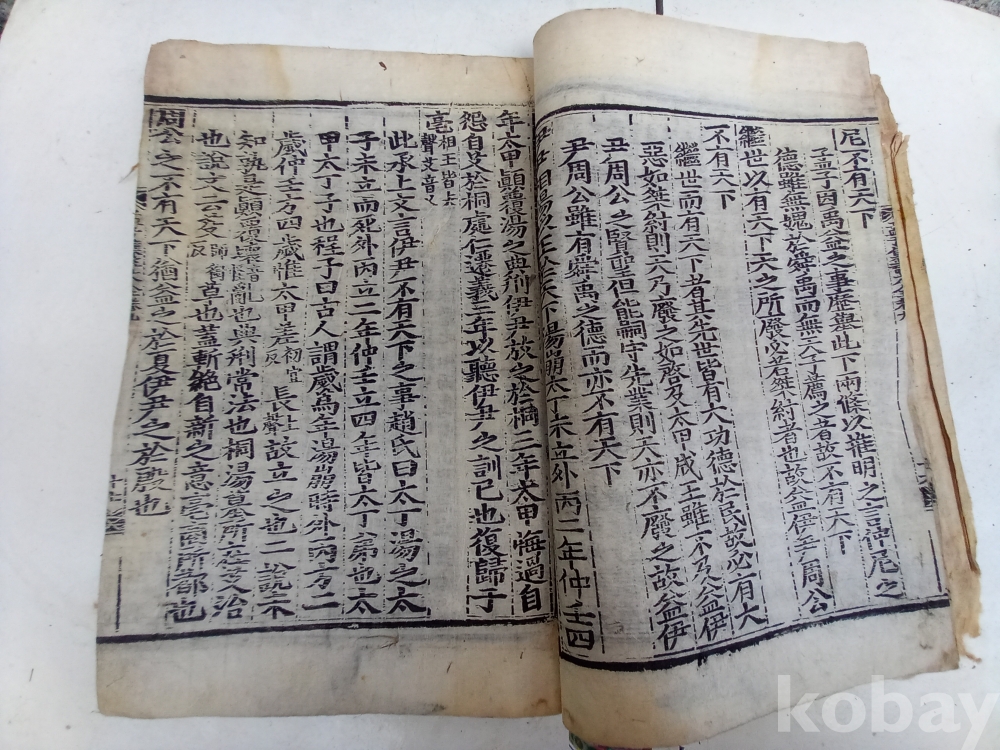 尼不有天下
孟子因禹益之事歷擧此下兩條以推明之言仲尼之
德雖無愧於舜禹而無天子薦之者故不有天下
繼世以有天下天之所廢必若桀紂者也故益伊尹周公
不有天下
繼世而有天下者其先世皆有大功德於民故必有大
惡如桀紂則天乃廢之如啓及太甲成王雖不及益伊
尹周公之賢聖但能嗣守先業則天亦不廢之故益伊
尹周公雖有舜禹之德而亦不有天下
伊尹相湯以王於天下湯崩太丁未立外丙二年仲壬四
年太甲顚覆湯之典刑伊尹放之於桐三年太甲悔過自
怨自艾於桐處仁遷義三年以聽伊尹之訓己也復歸于
亳相王皆去聲艾音乂
此承上文言伊尹不有天下之事趙氏曰太丁湯之太
子未立而死外丙立二年仲壬立四年皆太丁弟也太
甲太丁子也程子曰古人謂歲爲年湯崩時外丙方二
歲仲壬方四歲惟太甲差初宜反長上聲故立之也二說不
知孰是顚覆壞音怪亂也典刑常法也桐湯墓所在艾治
也說文云芟師銜反草也蓋斬絶自新之意亳商所都也
周公之不有天下猶益之於夏伊尹之於殷也
kobay